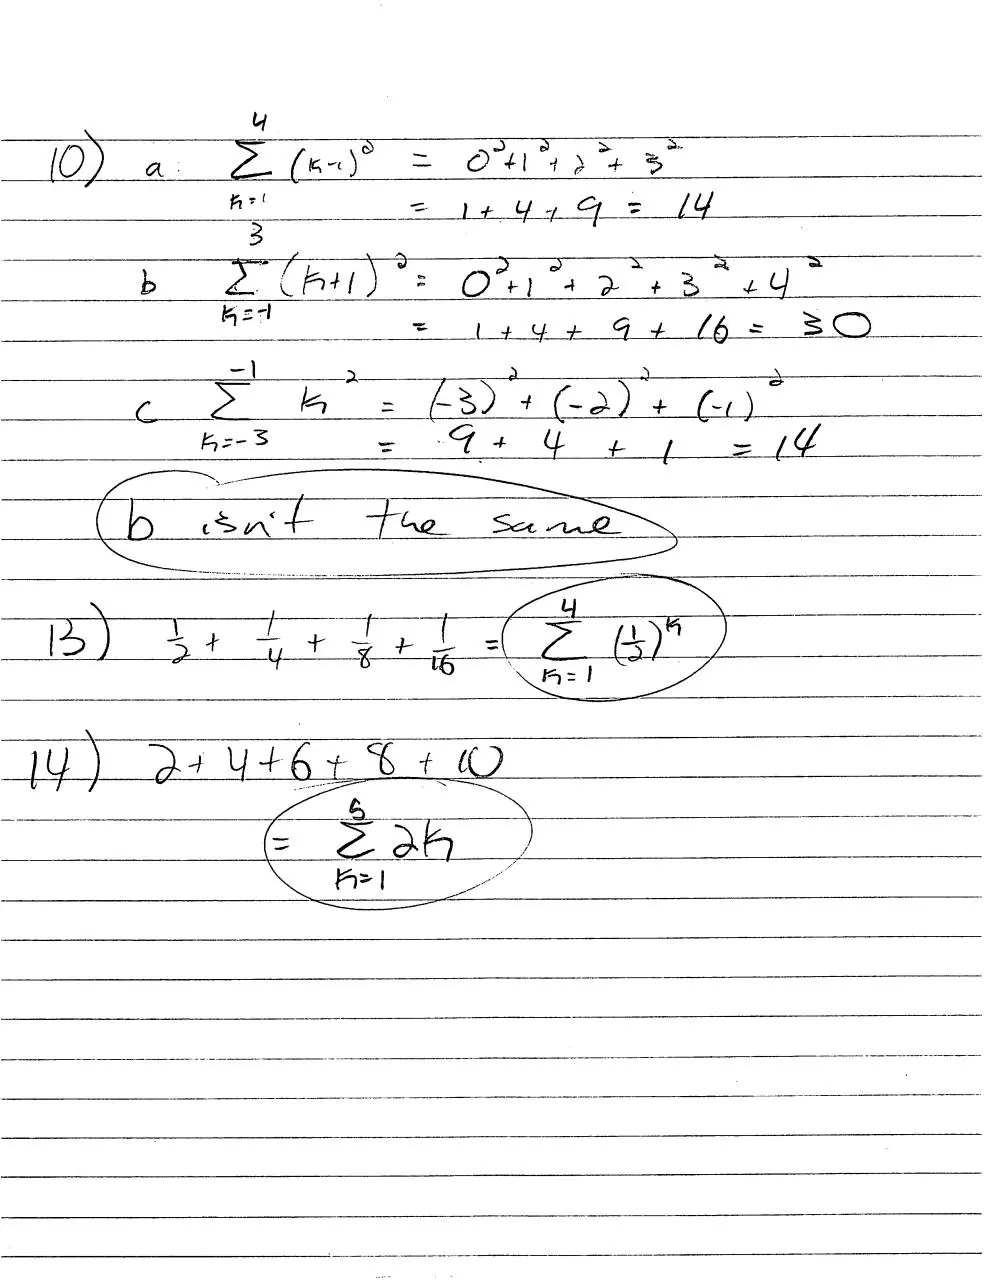 10) a. \sum_{k=1}^{4} (k-1)^2 = 0^2+1^2+2^2+3^2
= 1+4+9 = 14
b \sum_{k=-1}^{3} (k+1)^2 = 0^2+1^2+2^2+3^2+4^2
= 1+4+9+16 = 30
c \sum_{k=-3}^{-1} k^2 = (-3)^2+(-2)^2+(-1)^2
= 9+4+1 = 14
b isn't the same
13) 1/2 + 1/4 + 1/8 + 1/16 = \sum_{k=1}^{4} (1/2)^k
14) 2+4+6+8+10
= \sum_{k=1}^{5} 2k